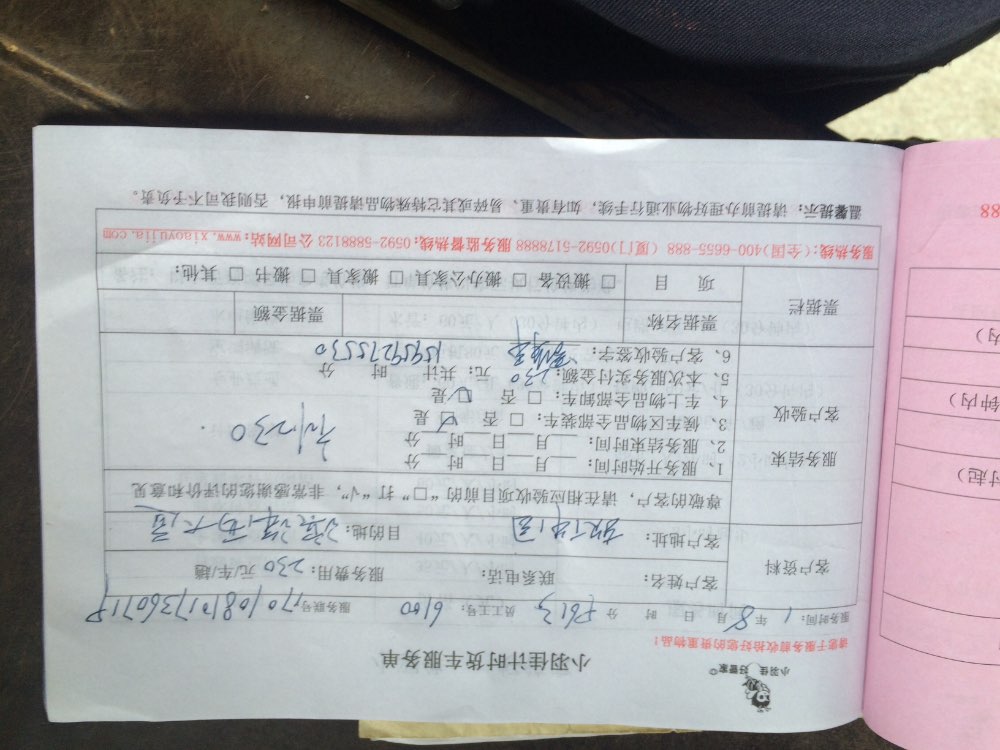 小羽佳 好管家
小羽佳计时货车服务单
请您于服务前收拾好您的贵重物品：
服务时间： 1 年 8 月 日 时 分 员工工号： 6100 服务账号
客户资料 客户姓名： 联系电话： 服务费用：230 元/车/趟
客户地址： 目的地：
尊敬的客户，请在相应验收项目前的“□”打“√”，非常感谢您的评价和意见
服务结束 客户验收
1、服务开始时间： 月 日 时 分
2、服务结束时间： 月 日 时 分
3、候车区物品全部装车：□ 否 ☑ 是
4、车上物品全部卸车：□ 否 ☑ 是
5、本次服务实付金额：230 元；共计 时 分
6、客户验收签字： 15959275530
230
票据栏 票据名称 票据金额
项 目 □ 搬设备 □ 搬办公家具 □ 搬家具 □ 搬书 □ 其他：
服务热线：(全国)400-6655-888 (厦门)0592-5178888 服务监督热线：0592-5888123 公司网站：www.xiaoyujia.com
温馨提示：请提前办理好物业通行手续，如有贵重、易碎或其它特殊物品请提前申报，否则我司不予负责。
88
内)
钟内)
时起)